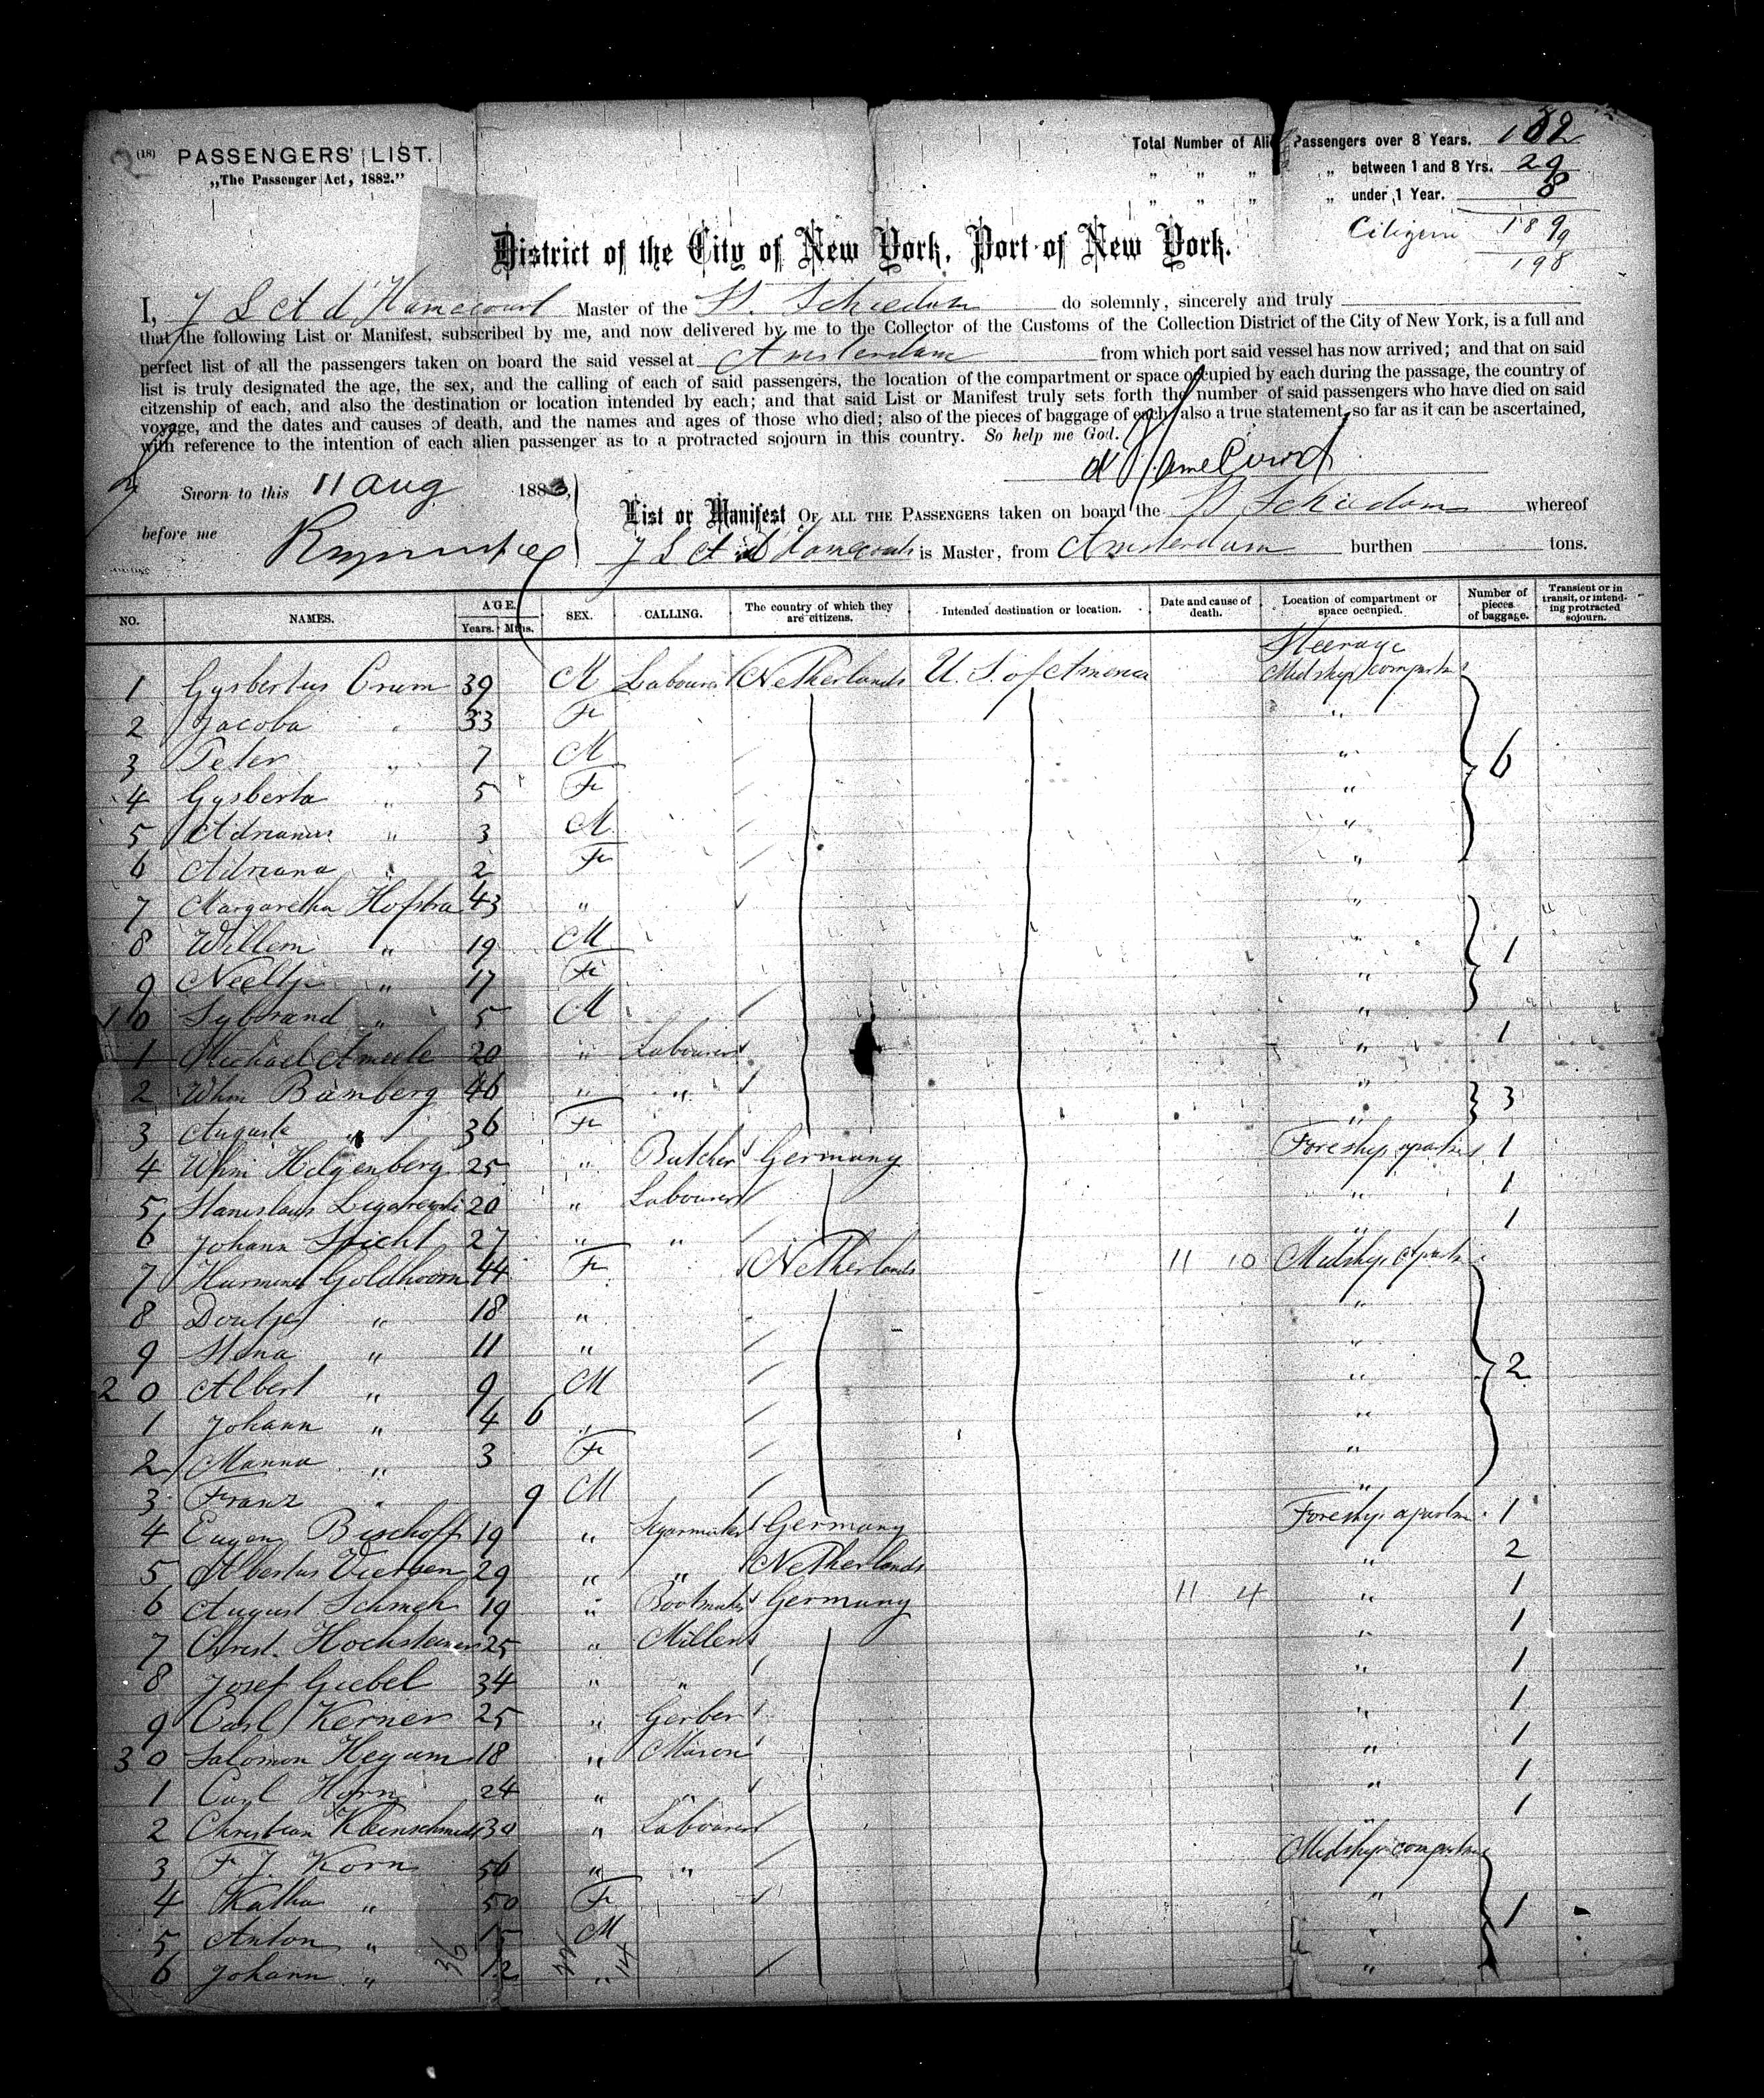 (18) PASSENGERS' LIST.
„The Passenger Act, 1882.”
Total Number of Alien Passengers over 8 Years.
„ „ „ „ between 1 and 8 Yrs. 29
„ „ „ „ under 1 Year. 8
189
198
District of the City of New York, Port of New York.
I, J L A d'Hamecourt Master of the St. Schiedam do solemnly, sincerely and truly
that the following List or Manifest, subscribed by me, and now delivered by me to the Collector of the Customs of the Collection District of the City of New York, is a full and
perfect list of all the passengers taken on board the said vessel at Amsterdam from which port said vessel has now arrived; and that on said
list is truly designated the age, the sex, and the calling of each of said passengers, the location of the compartment or space occupied by each during the passage, the country of
citzenship of each, and also the destination or location intended by each; and that said List or Manifest truly sets forth the number of said passengers who have died on said
voyage, and the dates and causes of death, and the names and ages of those who died; also of the pieces of baggage of each; also a true statement, so far as it can be ascertained,
with reference to the intention of each alien passenger as to a protracted sojourn in this country. So help me God.
d'Hamecourt
Sworn to this 11 Aug 1883,
before me
List or Manifest OF ALL THE PASSENGERS taken on board the St Schiedam whereof
J L A d'Hamecourt is Master, from Amsterdam burthen tons.
NO. NAMES. AGE. Years. Mths. SEX. CALLING. The country of which they are citizens. Intended destination or location. Date and cause of death. Location of compartment or space occupied. Number of pieces of baggage. Transient or in transit, or intending protracted sojourn.
Steerage
1 Gysbertus Crum 39 M Labourer Netherlands U. S. of America Midship compartm
2 Jacoba " 33 F "
3 Peter " 7 M " 6
4 Gysberta " 5 F "
5 Adrianus " 3 M "
6 Adriana " 2 F "
7 Margaretha Hofstra 43 " "
8 Willem " 19 M " 1
9 Neeltje " 17 F "
10 Sybrand " 5 M "
1 Michael 20 " Labourer " 1
2 Whm Bamberg 46 " " " 3
3 Auguste " 36 F "
4 Whm Helgenberg 25 " Butcher Germany Foreship apartm 1
5 Stanislaus 20 " Labourer " 1
6 Johann Spicht 27 " " " 1
7 Goldhoorn 44 F Netherlands 11 10 Midship Apartm
8 Doutje " 18 " "
9 Stina " 11 " "
20 Albert " 9 M " 2
1 Johann " 4 6 " "
2 Manna " 3 F "
3 Franz " 9 M "
4 Eugen Bischoff 19 " Segarmaker Germany Foreship apartm 1
5 Albertus Viersen 29 " " Netherlands " 2
6 August Schmeh 19 " Bootmaker Germany 11 4 " 1
7 Christ. Hochsteiner 25 " Miller " 1
8 Josef Giebel 34 " " " 1
9 Carl Kerner 25 " Gerber " 1
30 Salomon Heyum 18 " Mason " 1
1 Carl Horn 24 " " " 1
2 Christian Kleinschmidt 30 " Labourer " 1
3 F. J. Korn 56 " " Midship compartm
4 Katha " 50 F " 1
5 Anton " 15 M "
6 Johann " 12 " "
36 22 14